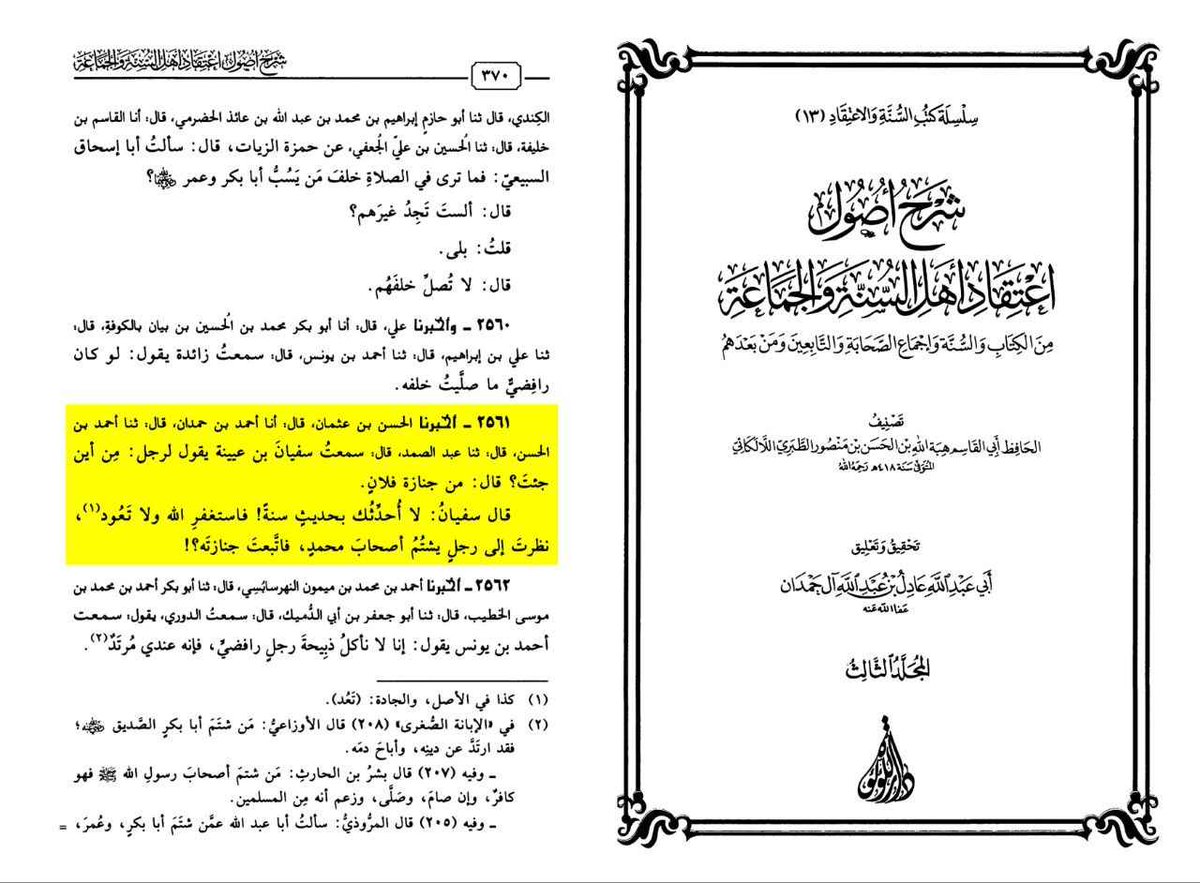 سِلْسِلَة كُتُبِ السُّنَّةِ وَالاعْتِقَادِ (١٣)
شَرْحُ أُصُولِ
اعْتِقَادِ أَهْلِ السُّنَّةِ وَالْجَمَاعَةِ
مِنَ الكِتَابِ وَالسُّنَّةِ وَإِجْمَاعِ الصَّحَابَةِ وَالتَّابِعِينَ وَمَنْ بَعْدَهُمْ
تَصْنِيفُ
الحَافِظِ أَبِي القَاسِمِ هِبَةِ اللهِ بْنِ الحَسَنِ بْنِ مَنْصُورٍ الطَّبَرِيِّ اللَّالَكَائِيِّ
المُتَوَفَّى سَنَة ٤١٨هـ رَحِمَهُ اللهُ
تَحْقِيقُ وَتَعْلِيق
أَبِي عَبْدِ اللهِ عَادِلِ بْنِ عَبْدِ اللهِ آلِ حَمْدَان
عَفَا اللهُ عَنْهُ
المُجَلَّدُ الثَّالِثُ
دار اللؤلؤة
شَرْحُ أُصُولِ اعْتِقَادِ أَهْلِ السُّنَّةِ وَالْجَمَاعَةِ
٣٧٠
الكِندي، قال: ثنا أبو حازم إبراهيم بن محمد بن عبد الله بن عائذ الحضرمي، قال: أنا القاسم بن
خليفة، قال: ثنا الحُسين بن عليّ الجُعفي، عن حمزة الزيات، قال: سألتُ أبا إسحاق
السبيعيّ: فما ترى في الصلاةِ خلفَ مَن يَسُبُّ أبا بكر وعمر رضي الله عنهما؟
قال: ألستَ تَجِدُ غيرَهم؟
قلتُ: بلى.
قال: لا تُصلِّ خلفَهُم.
٢٥٦٠ ـ وأخبرنا علي، قال: أنا أبو بكر محمد بن الحُسين بن بيان بالكوفةِ، قال:
ثنا علي بن إبراهيم، قال: ثنا أحمد بن يونس، قال: سمعتُ زائدة يقول: لو كان
رافِضيٌّ ما صلَّيتُ خلفه.
٢٥٦١ ـ أخبرنا الحسن بن عثمان، قال: أنا أحمد بن حمدان، قال: ثنا أحمد بن
الحسن، قال: ثنا عبد الصمد، قال: سمعتُ سفيانَ بن عيينة يقول لرجل: مِن أين
جئتَ؟ قال: من جنازة فلانٍ.
قال سفيانُ: لا أُحدِّثُك بحديثٍ سنةً! فاستغفرِ الله ولا تَعُود(١)،
نظرتَ إلى رجلٍ يشتُمُ أصحابَ محمدٍ، فاتَّبعتَ جنازتَه؟!
٢٥٦٢ ـ أخبرنا أحمد بن محمد بن ميمون النهرسابُسِي، قال: ثنا أبو بكر أحمد بن محمد بن
موسى الخطيب، قال: ثنا أبو جعفر بن أبي الدُّميك، قال: سمعتُ الدوري، يقول: سمعت
أحمد بن يونس يقول: إنا لا نأكلُ ذبِيحةَ رجلٍ رافضيٍّ، فإنه عندي مُرتَدٌ(٢).
(١) كذا في الأصل، والجادة: (تَعُد).
(٢) في «الإبانة الصُّغرى» (٢٠٨) قال الأوزاعيُّ: مَن شتَمَ أبا بكرٍ الصَّديق رضي الله عنه؛
فقد ارتَدَّ عن دينِه، وأباحَ دمَه.
ـ وفيه (٢٠٧) قال بشرُ بن الحارثِ: مَن شتمَ أصحابَ رسولِ الله ﷺ فهو
كافرٌ، وإن صامَ، وصَلَّى، وزعم أنه مِن المسلمين.
ـ وفيه (٢٠٥) قال المرُّوذيُّ: سألتُ أبا عبد الله عمَّن شتَمَ أبا بكرٍ، وعُمرَ، =